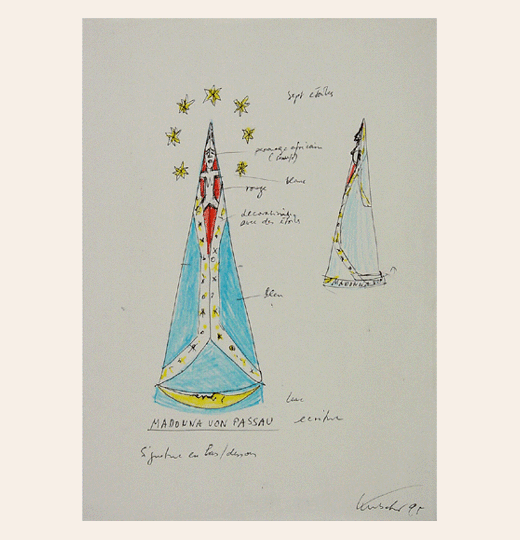 sept étoiles
personnage africain
blanc
rouge
décoration
avec des étoiles
bleu
MADONNA VON PASSAU
écriture
Signature en bas/dessous
MADONNA